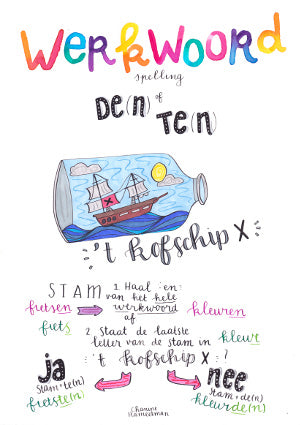 WERKWOORD
spelling
DE(N) of
TE(N)
't kofschip X
STAM 1. Haal :en:
van het hele
fietsen werkwoord kleuren
af
fiets kleur
2. Staat de laatste
letter van de stam in
't kofschip X ?
ja nee
stam+te(n) stam+de(n)
fietste(n) kleurde(n)